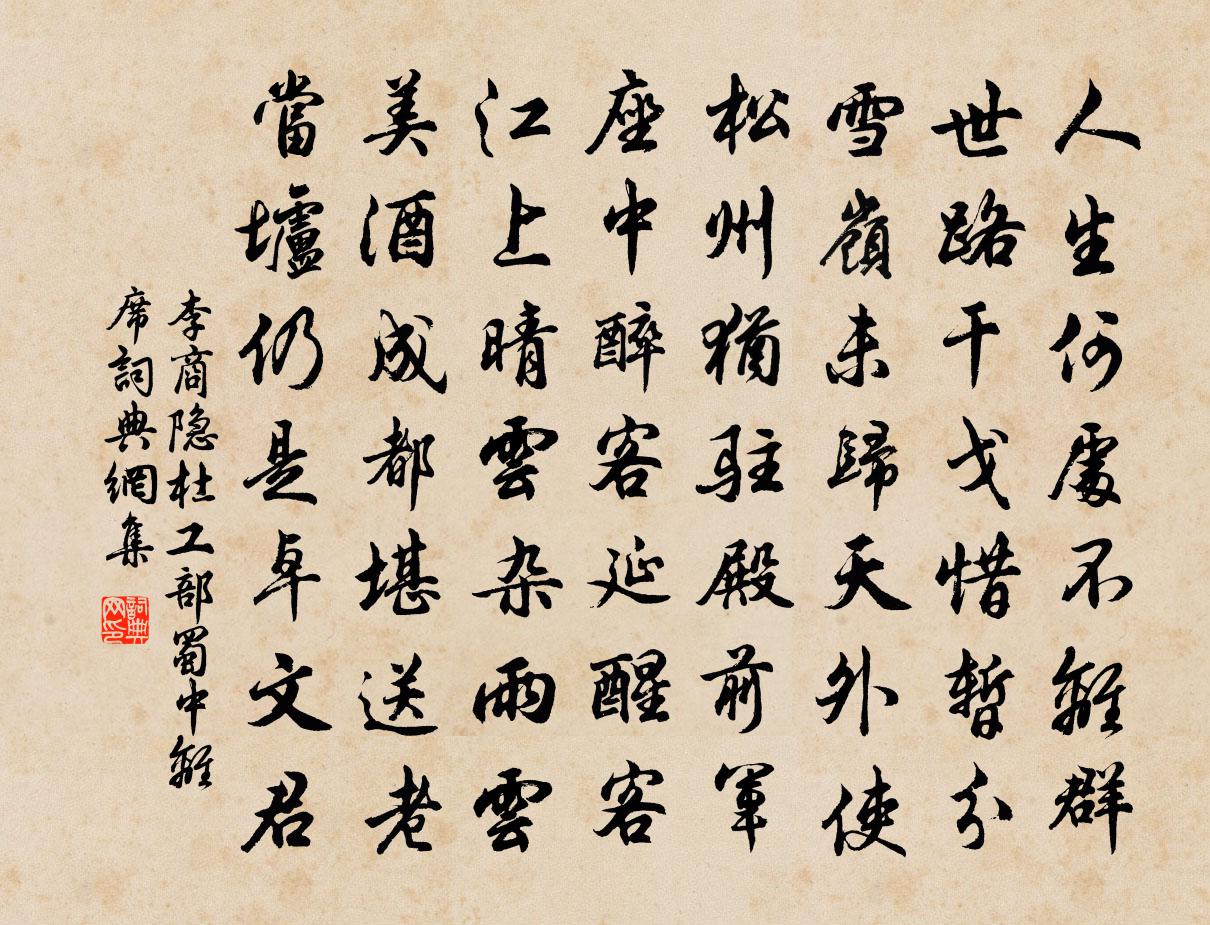 人生何處不離群
世路干戈惜暫分
雪嶺未歸天外使
松州猶駐殿前軍
座中醉客延醒客
江上晴雲杂雨雲
美酒成都堪送老
當壚仍是卓文君
李商隐杜工部蜀中離
席詞典網集
詞典网印